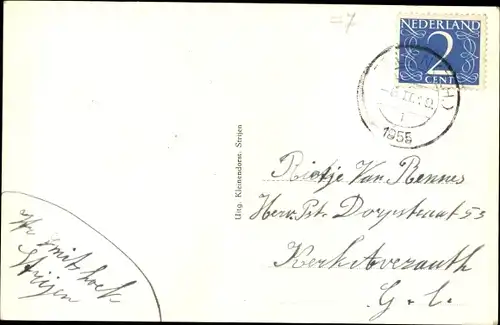 =7
NEDERLAND
2
CENT
1955
Uitg. Kleinendorst. Strijen
Rietje Van Rennes
Herv. Pst. Dorpstraat 55
G.l.
Smitshoek
Strijen